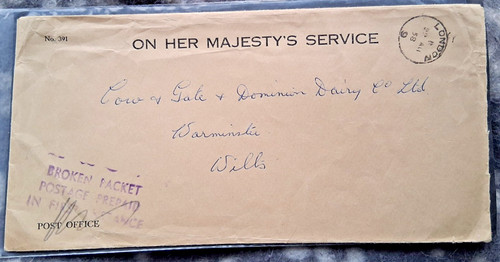 No. 391
ON HER MAJESTY'S SERVICE
LONDON
58
Cow & Gate & Dominion Dairy Co Ltd
Warminster
Wilts
BROKEN PACKET
POSTAGE PREPAID
IN
ANCE
POST OFFICE